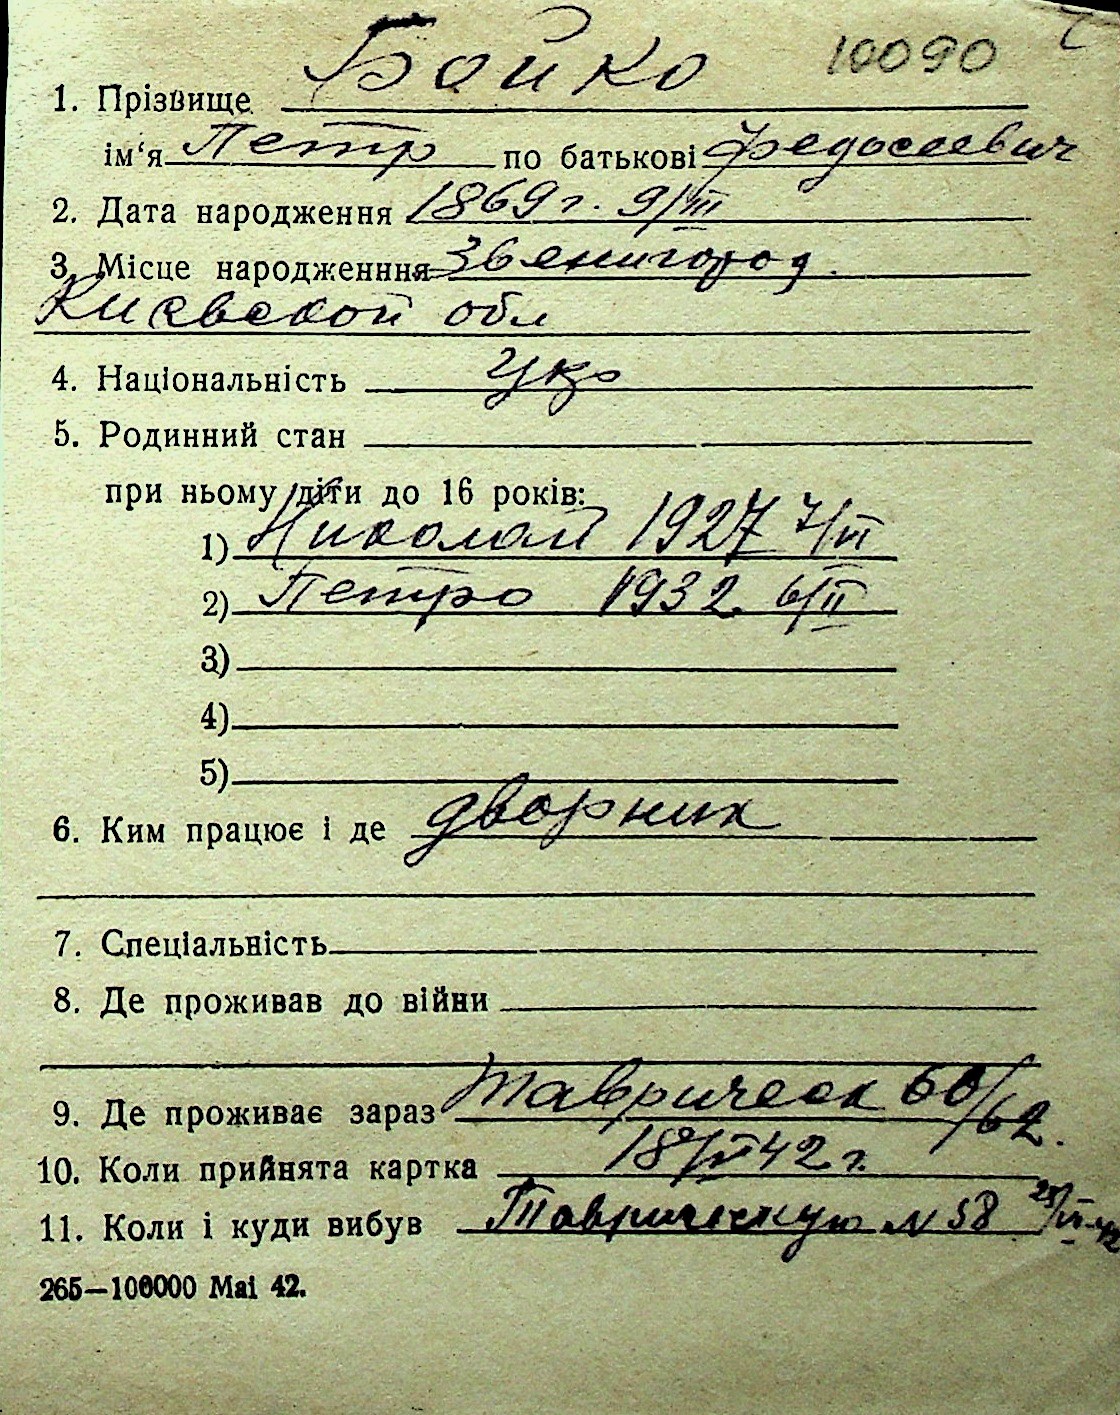 10090
1. Прізвище Бойко
ім'я Петр по батькові Федосеевич
2. Дата народження 1869 г. 9/VIII
3. Місце народженння Звенигород.
Киевской обл
4. Національність Укр
5. Родинний стан
при ньому діти до 16 років:
1) Николай 1927 7/VI
2) Петро 1932. 6/II
3)
4)
5)
6. Ким працює і де дворник
7. Спеціальність
8. Де проживав до війни
9. Де проживає зараз Таврическ 60/62.
10. Коли прийнята картка 18/VI 42 г.
11. Коли і куди вибув Таврическую № 58 25/VI-42
265—100000 Mai 42.